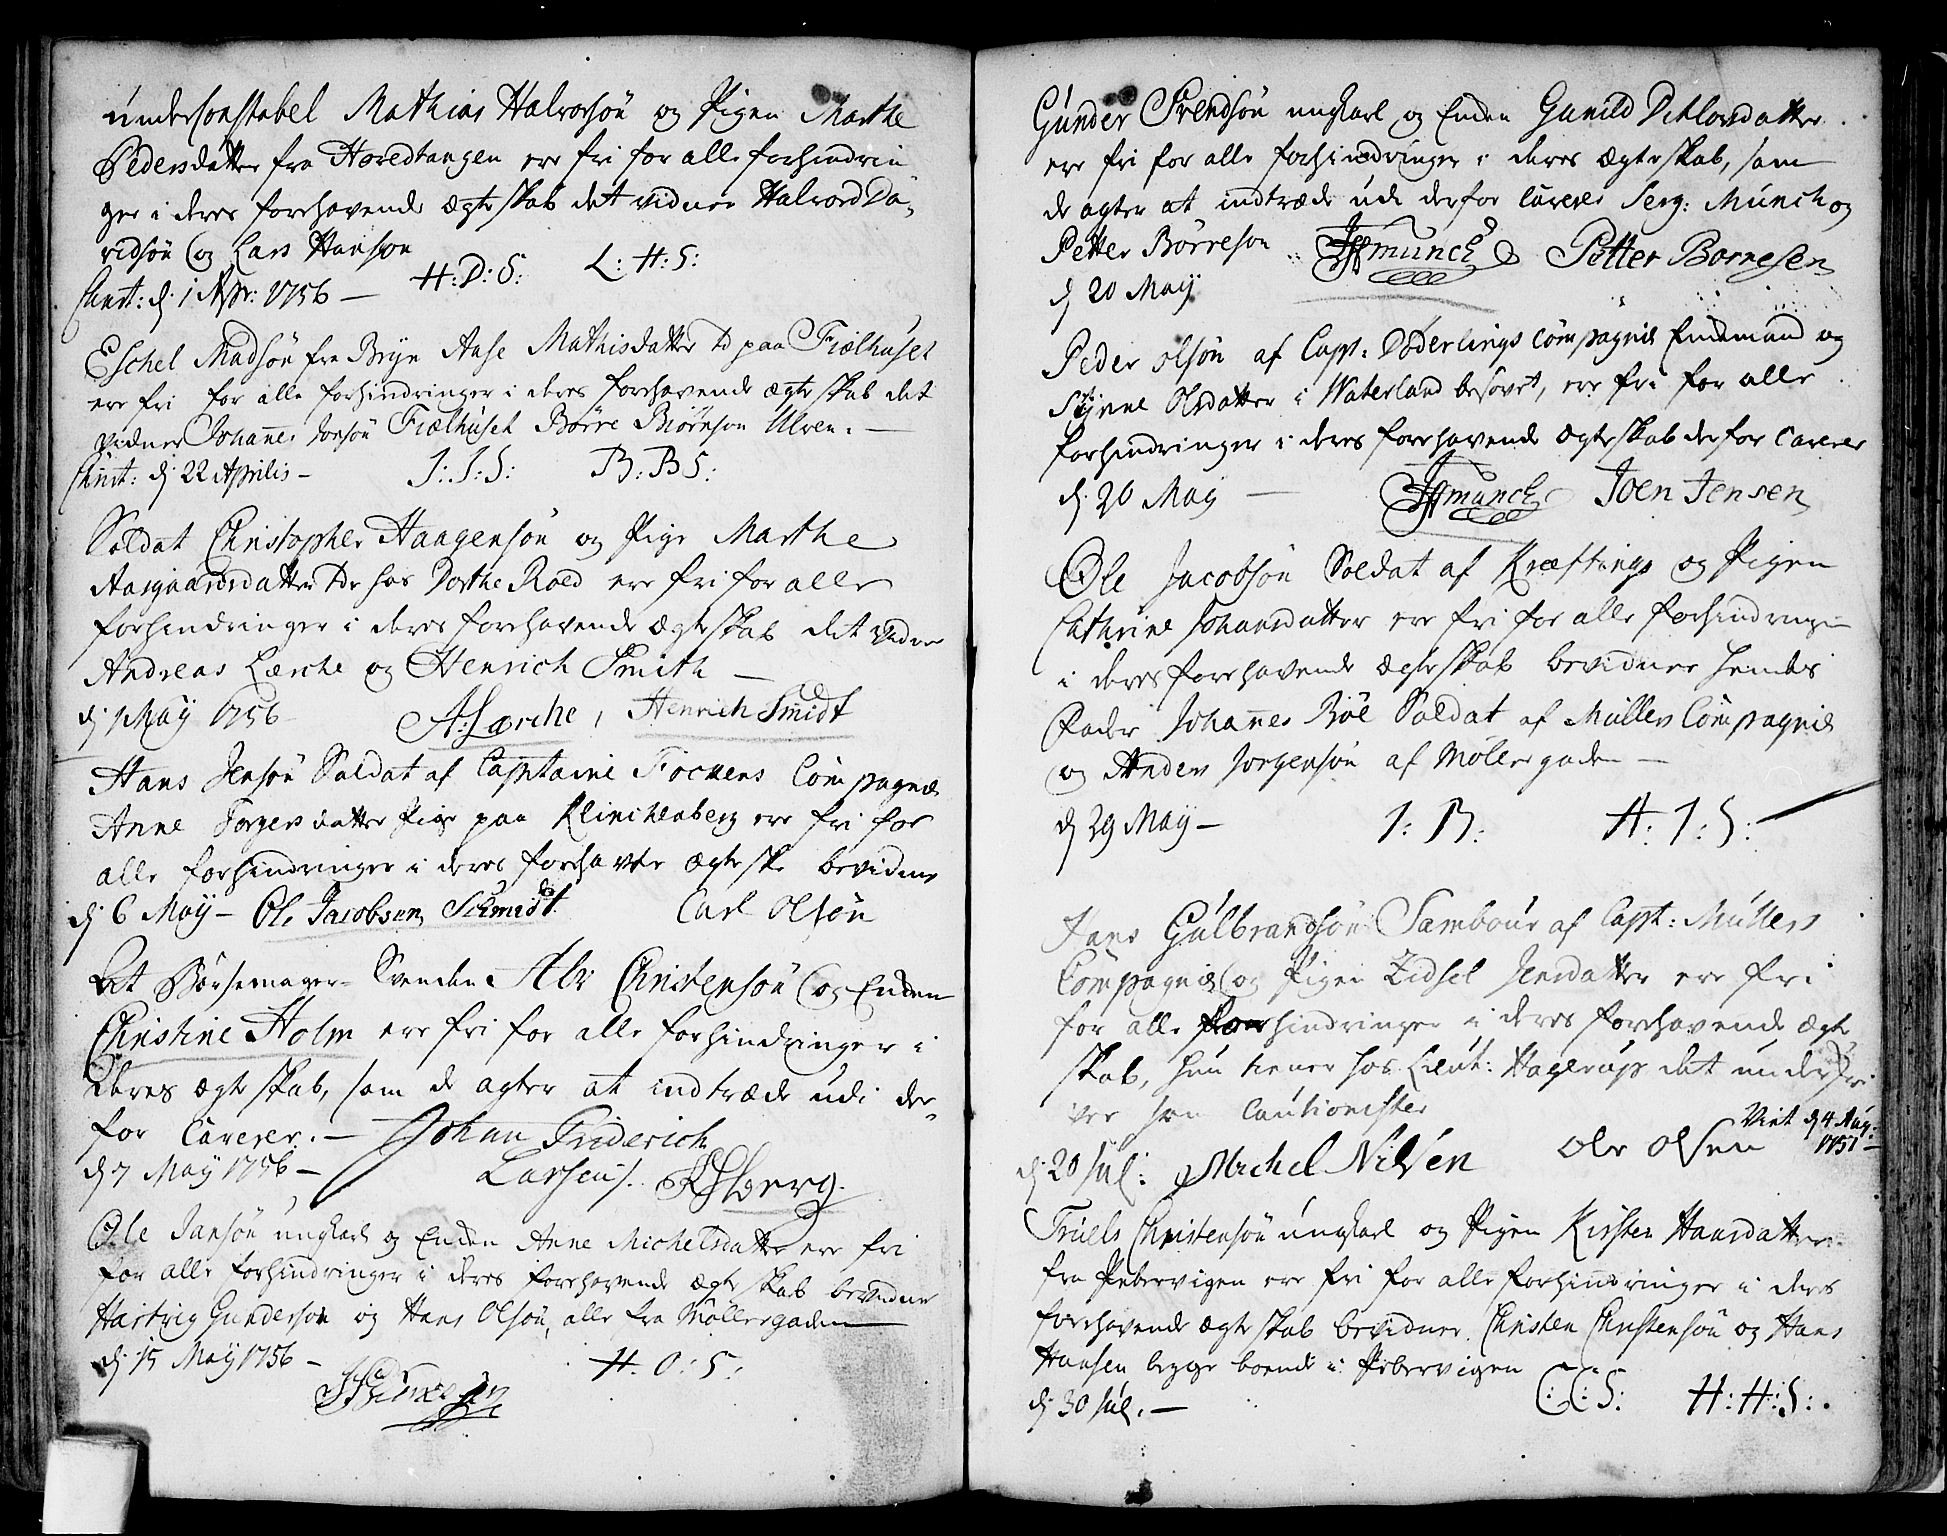 Underconstabel Mathias Halvorsön og Pigen Marthe
Pedersdatter fra Hovedtangen ere fri for alle forhindrin
ger i deres forehavende ægteskab det vidner Halvord Da„
vidsön og Lars Hanson
Christ: d. 1 Apr: 1756 — H: D: S: L: H: S:
Eschel Madsön fra Bryn Aase Mathisdatter td paa Fiælhuset
ere fri for alle forhindringer i deres forehavende ægteskab det
vidner Johanes Jonsön Fiælhuset Börre Biörnson Ulven. —
Christ: d. 22 Aprilis — J: J: S: B: B S:
Soldat Christopher Haagensön og Pige Marthe
Aasgaardsdatter hos Dorthe Roed ere fri for alle
forhindringer i deres forehavende ægteskab det vidner
Andreas Lærche og Henrich Smith —
d. 1 May 1756 A: Lærche, Henrich Smidt
Hans Jensön Soldat af Captaine Fockens Compagnie
Anne Torgersdatter Pige paa Klinchenberg ere fri for
alle forhindringer i deres forehavde ægtesk bevidner
d. 6 May — Ole Jacobsen Schmidt. Carl Olsön
At Börsemager-Svenden Christensön og Enden
Christine Holm ere fri for alle forhindringer i
deres ægteskab, som de agter at indtræde udi der„
for caverer. — Johan Friderich
d. 7 May 1756 — Larsen
Ole Jansön ungkarl og Enden Anne Michelsdatter ere fri
for alle forhindringer i deres forehavende ægteskab bevidner
Hartvig Gunderson og Hans Olsön, alle fra Möllergaden
d. 15 May 1756 — H: O: S:
Gunder Svendsön ungkarl og Enden Gunild Ditlovsdatter
ere fri for alle forhindringer i deres ægteskab, som
de agter at indtræde udi derfor caverer Serg: Munch og
Petter Börreson Munch Petter Borresen
d. 20 May
Peder Olsön af Capt: Döderlings Compagnie Enkemand og
Synne Olsdatter i Waterland besovet, ere fri for alle
forhindringer i deres forehavende ægteskab derfor caverer
d. 20 May — Munch Joen Jensen
Ole Jacobsön Soldat af Kræftings og Pigen
Cathrine Johansdatter ere fri for alle forhindringer
i deres forehavende ægteskab bevidner hendes
Fader Johanes Böe Soldat af Müllers Compagnie
og Anders Jorgensön af Möllergaden —
d. 29 May — J: B: A: J: S:
Hans Gulbrandsön Tambour af Capt: Müllers
Compagnie og Pigen Zidsel Jensdatter ere fri
for alle forhindringer i deres forehavende ægte
skab, hun tiener hos Lieut: Hagerup det underskri
ver som Cautionister
Viet d. 4 Aug:
1757 —
d. 20 Jul: Michel Nilsen Ole Olsen
Truels Christensön ungkarl og Pigen Kirsten Hansdatter
fra Pebervigen ere fri for alle forhindringer i deres
forehavende ægteskab bevidner Christen Christensön og Hans
Hansen begge boende i Pebervigen
d. 30 Jul. — C: C: S: H: H: S: